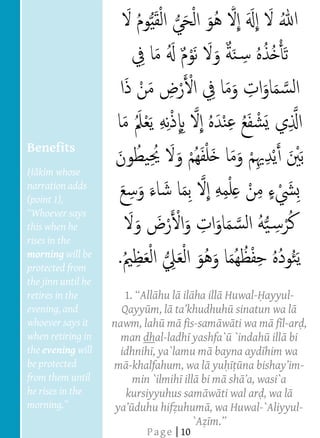 اللهُ لَا إِلَهَ إِلَّا هُوَ الْحَيُّ الْقَيُّومُ لَا
تَأْخُذُهُ سِنَةٌ وَلَا نَوْمٌ لَهُ مَا فِي
السَّمَاوَاتِ وَمَا فِي الْأَرْضِ مَنْ ذَا
الَّذِي يَشْفَعُ عِنْدَهُ إِلَّا بِإِذْنِهِ يَعْلَمُ مَا
بَيْنَ أَيْدِيهِمْ وَمَا خَلْفَهُمْ وَلَا يُحِيطُونَ
بِشَيْءٍ مِنْ عِلْمِهِ إِلَّا بِمَا شَاءَ وَسِعَ
كُرْسِيُّهُ السَّمَاوَاتِ وَالْأَرْضَ وَلَا
يَئُودُهُ حِفْظُهُمَا وَهُوَ الْعَلِيُّ الْعَظِيمُ.
1. “Allāhu lā ilāha illā Huwal-Ḥayyul-
Qayyūm, lā ta’khudhuhū sinatun wa lā
nawm, lahū mā fis-samāwāti wa mā fil-arḍ,
man dhal-ladhī yashfa`ū `indahū illā bi
idhnihī, ya`lamu mā bayna aydīhim wa
mā-khalfahum, wa lā yuḥīṭūna bishay’im-
min `ilmihī illā bi mā shā’a, wasi`a
kursiyyuhus samāwāti wal arḍ, wa lā
ya’ūduhu hifẓuhumā, wa Huwal-`Aliyyul-
`Aẓīm.”
Benefits
Ḥākim whose
narration adds
(point 1),
“Whoever says
this when he
rises in the
morning will be
protected from
the jinn until he
retires in the
evening, and
whoever says it
when retiring in
the evening will
be protected
from them until
he rises in the
morning.”
Page | 10